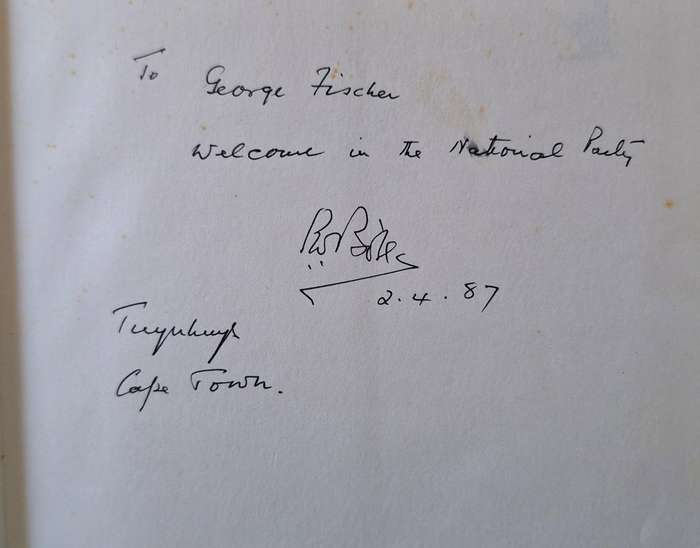 To George Fischer
Welcome in the National Party
PW Botha
2.4.87
Tuynhuys
Cape Town.